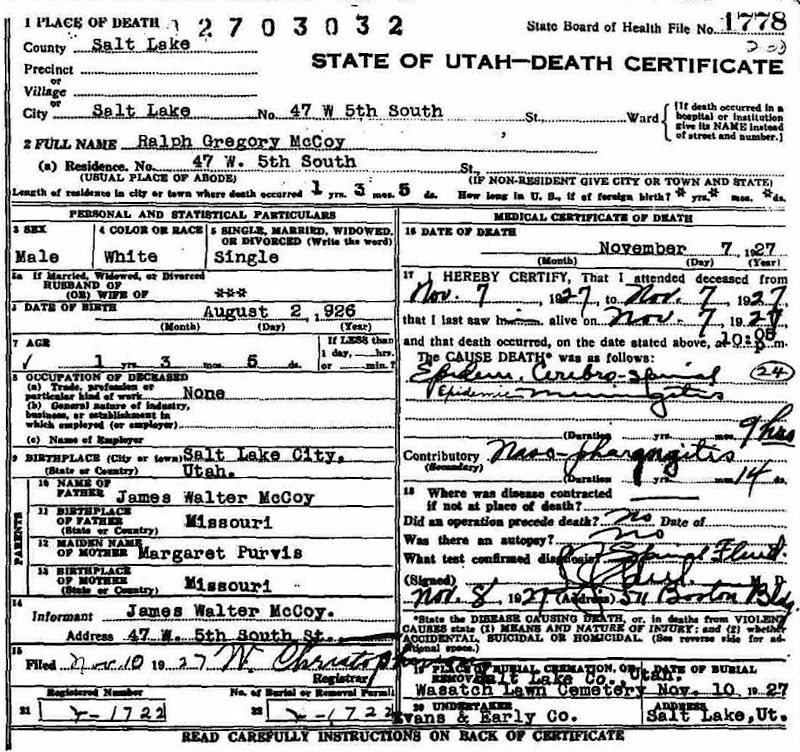 1 PLACE OF DEATH 2703032 State Board of Health File No. 1778
County Salt Lake
STATE OF UTAH—DEATH CERTIFICATE
Precinct
or
Village
or
City Salt Lake No. 47 W 5th South St., Ward
[If death occurred in a hospital or institution give its NAME instead of street and number.]
2 FULL NAME Ralph Gregory McCoy
(a) Residence. No. 47 W. 5th South St.
(USUAL PLACE OF ABODE) (IF NON-RESIDENT GIVE CITY OR TOWN AND STATE)
Length of residence in city or town where death occurred 1 yrs. 3 mos. 5 ds. How long in U. S., if of foreign birth? * yrs. * mos. * ds.
PERSONAL AND STATISTICAL PARTICULARS
3 SEX
Male
4 COLOR OR RACE
White
5 SINGLE, MARRIED, WIDOWED, OR DIVORCED (Write the word)
Single
5a If Married, Widowed, or Divorced
HUSBAND OF
(OR) WIFE OF ***
6 DATE OF BIRTH August 2, 1926
(Month) (Day) (Year)
7 AGE
1 yrs. 3 mos. 5 ds.
If LESS than
1 day,....hrs.
or ....min.?
8 OCCUPATION OF DECEASED
(a) Trade, profession or
particular kind of work None
(b) General nature of industry,
business, or establishment in
which employed (or employer)
(c) Name of Employer
9 BIRTHPLACE (City or town) Salt Lake City,
(State or Country) Utah.
PARENTS
10 NAME OF
FATHER James Walter McCoy
11 BIRTHPLACE
OF FATHER Missouri
(State or Country)
12 MAIDEN NAME
OF MOTHER Margaret Purvis
13 BIRTHPLACE
OF MOTHER Missouri
(State or Country)
14
Informant James Walter McCoy.
Address 47 W. 5th South St.
15
Filed Nov 10 1927
Registrar
Registered Number
21 Y-1722
No. of Burial or Removal Permit
22 Y-1722
MEDICAL CERTIFICATE OF DEATH
16 DATE OF DEATH
November 7, 1927
(Month) (Day) (Year)
17 I HEREBY CERTIFY, That I attended deceased from
Nov. 7, 1927, to Nov. 7, 1927
that I last saw him alive on Nov. 7, 1927
and that death occurred, on the date stated above, at 10:05 m.
The CAUSE DEATH* was as follows:
Epidem. Cerebro-spinal 24
Epidemic meningitis
(Duration) yrs. mos. 9 hrs
Contributory Naso-pharyngitis
(Secondary)
(Duration) yrs. mos. 14 ds.
18 Where was disease contracted
if not at place of death?
Did an operation precede death? no Date of
Was there an autopsy? no
What test confirmed diagnosis? Spinal Fluid.
(Signed) M. D.
Nov. 8 1927 (Address) 511 Boston Bldg.
*State the DISEASE CAUSING DEATH, or, in deaths from VIOLENT
CAUSES state (1) MEANS AND NATURE OF INJURY; and (2) whether
ACCIDENTAL, SUICIDAL OR HOMICIDAL. (See reverse side for additional space.)
19 PLACE OF BURIAL, CREMATION, OR REMOVAL
Salt Lake Co., Utah.
Wasatch Lawn Cemetery
DATE OF BURIAL
Nov. 10, 1927
20 UNDERTAKER
Evans & Early Co.
ADDRESS
Salt Lake, Ut.
READ CAREFULLY INSTRUCTIONS ON BACK OF CERTIFICATE